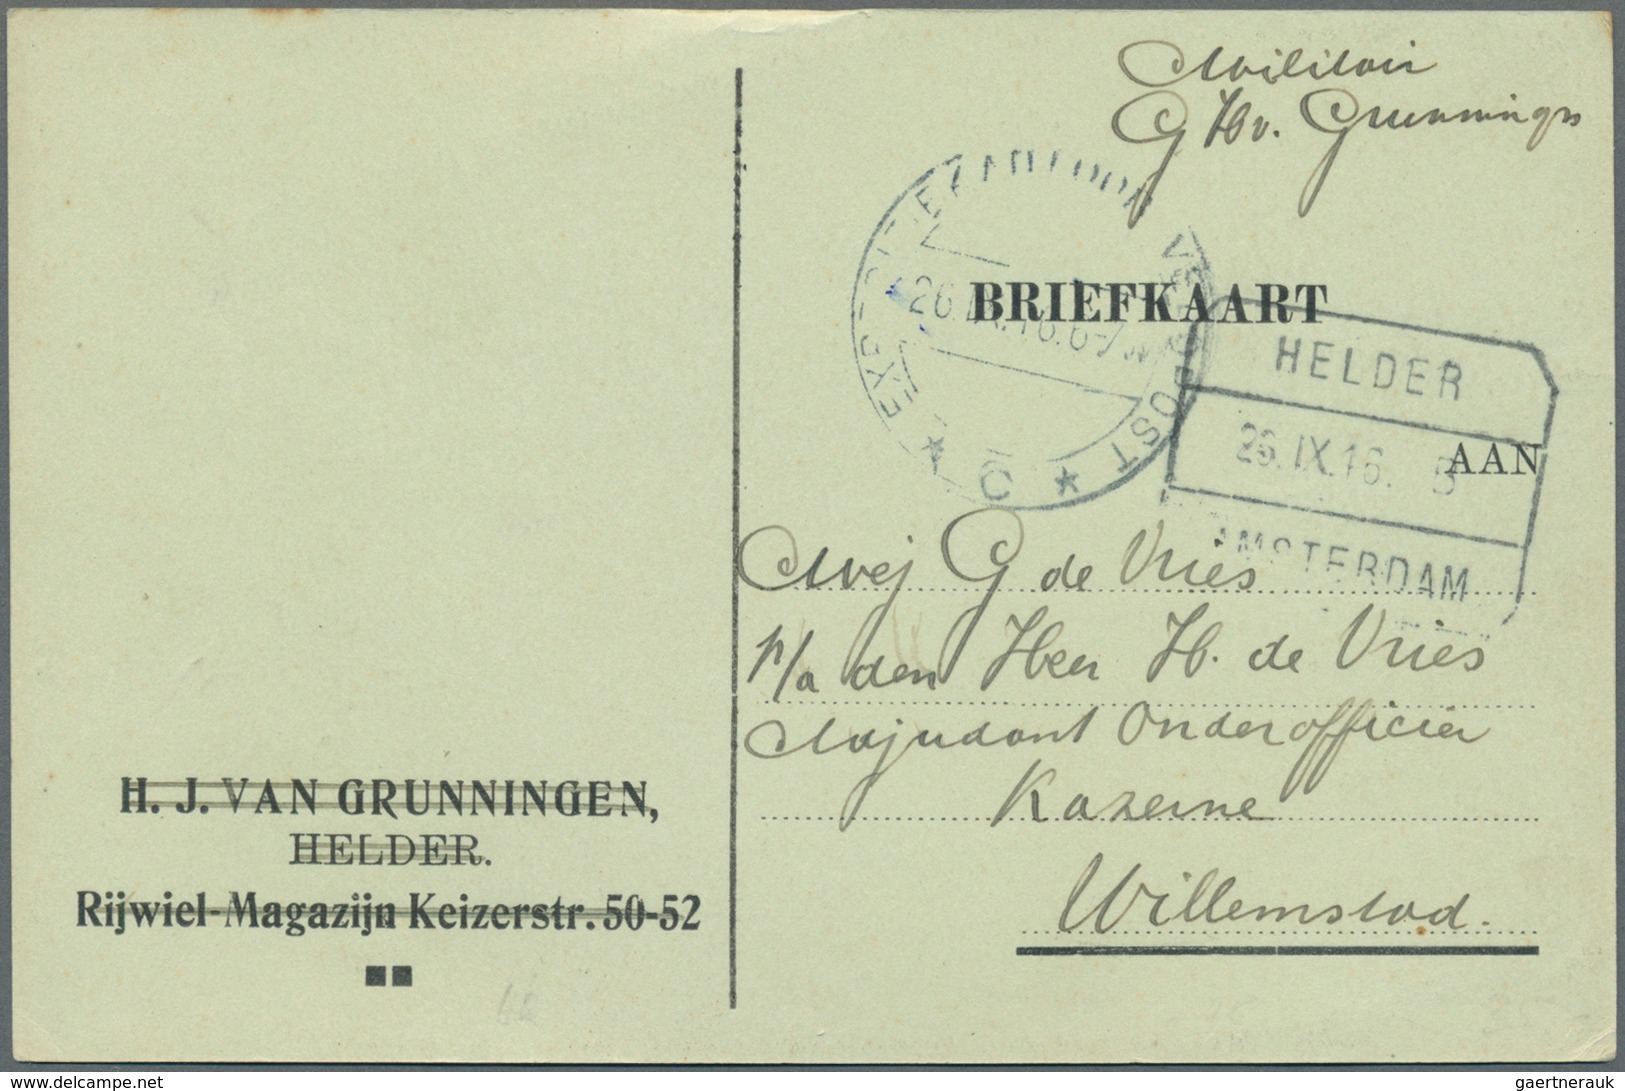 Militair
G Hv. Grunningen
EXPEDITIE VELDPOST
★ C ★
26.IX.16.6-7N
BRIEFKAART
HELDER
26.IX.16. B
AMSTERDAM
AAN
Mej G de Vries
p/a den Heer H. de Vries
Adjudant Onderofficier
Kazerne
Willemstad.
H. J. VAN GRUNNINGEN,
HELDER.
Rijwiel-Magazijn Keizerstr. 50-52
www.delcampe.net
gaertnerauk